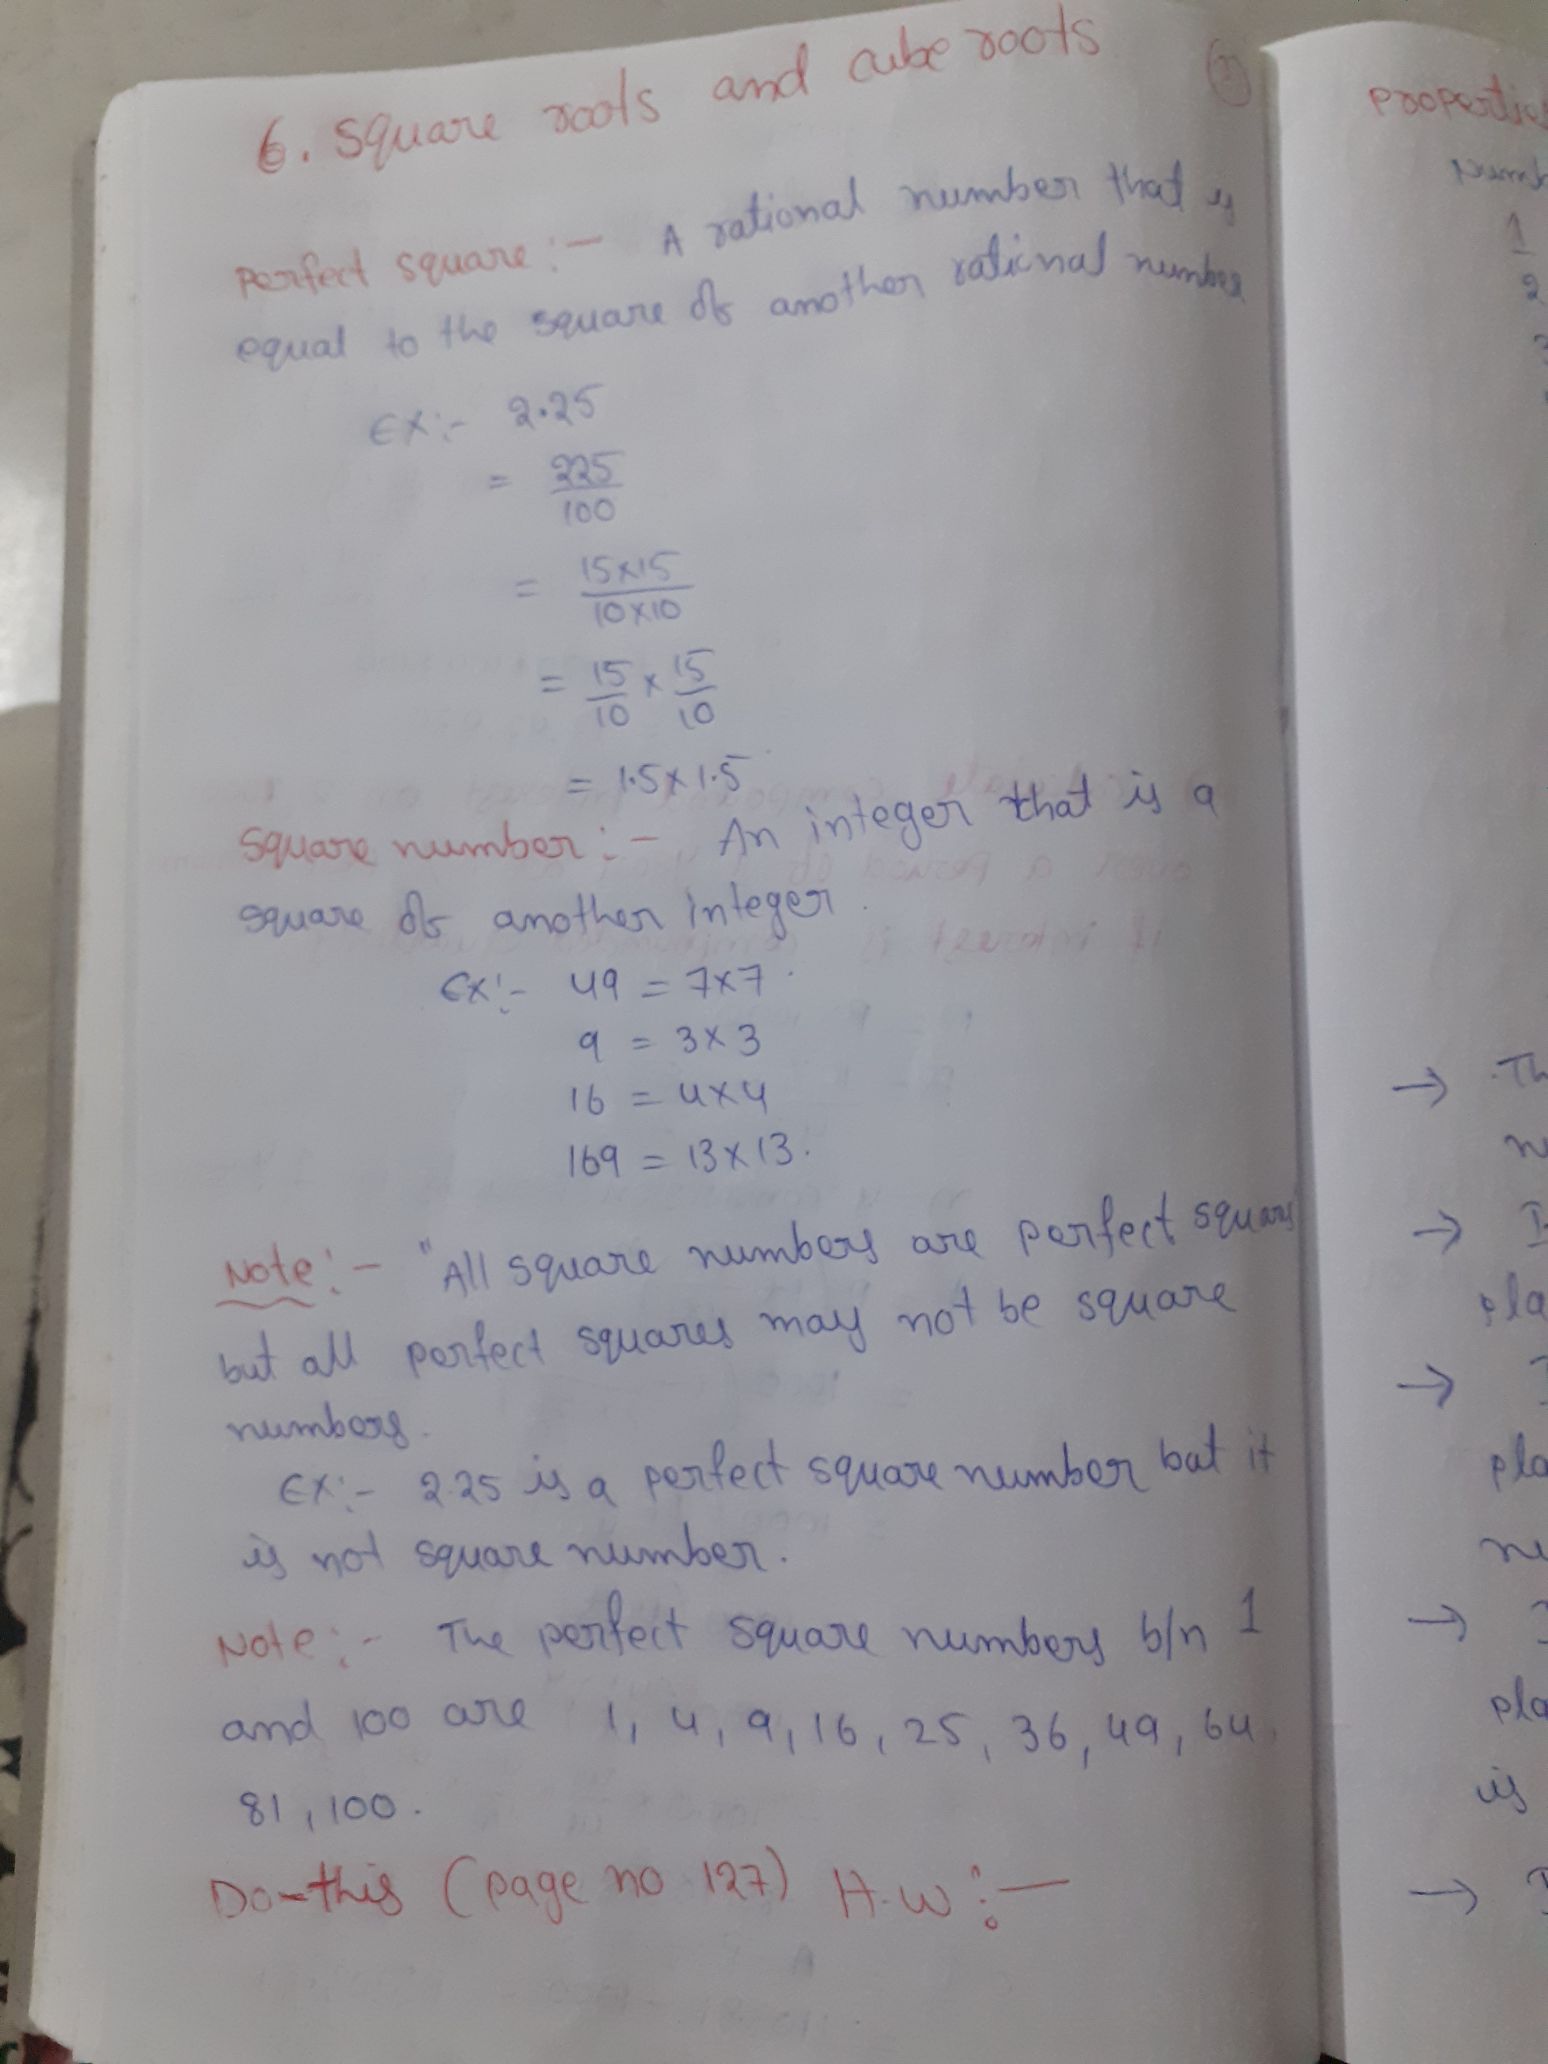 6. Square roots and cube roots
Perfect square :- A rational number that is
equal to the square of another rational number
Ex:- 2.25
= 225/100
= 15×15/10×10
= 15/10 × 15/10
= 1.5×1.5
Square number :- An integer that is a
square of another integer.
Ex:- 49 = 7×7.
9 = 3×3
16 = 4×4
169 = 13×13.
Note :- "All square numbers are perfect squares
but all perfect squares may not be square
numbers.
Ex:- 2.25 is a perfect square number but it
is not square number.
Note :- The perfect square numbers b/n 1
and 100 are 1, 4, 9, 16, 25, 36, 49, 64,
81, 100.
Do-this (page no 127) H.W :-
Propertie
Numb
1
2
3
→ Th
→
pla
→
pla
→
pla
is
→